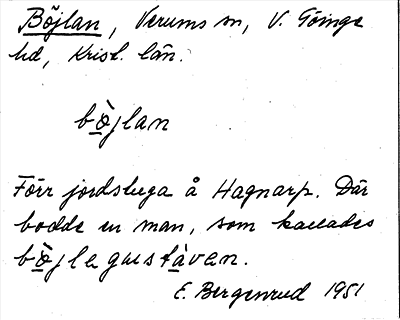 Böjlan, Verums sn, V. Göinge
hd, Krist. län.
bö̀jlan
Förr jordstuga å Hagnarp. Där
bodde en man, som kallades
bö̀jlagustàven.
E. Bergenrud 1951